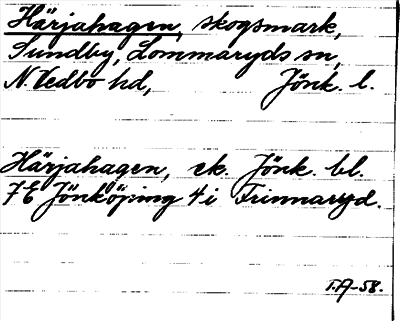 Härjahagen, skogsmark,
Sundby, Lommaryds sn,
N. Vedbo hd, Jönk. l.
Härjahagen, ek. Jönk. bl.
7E Jönköping 4i Frinnaryd.
I.A-58.